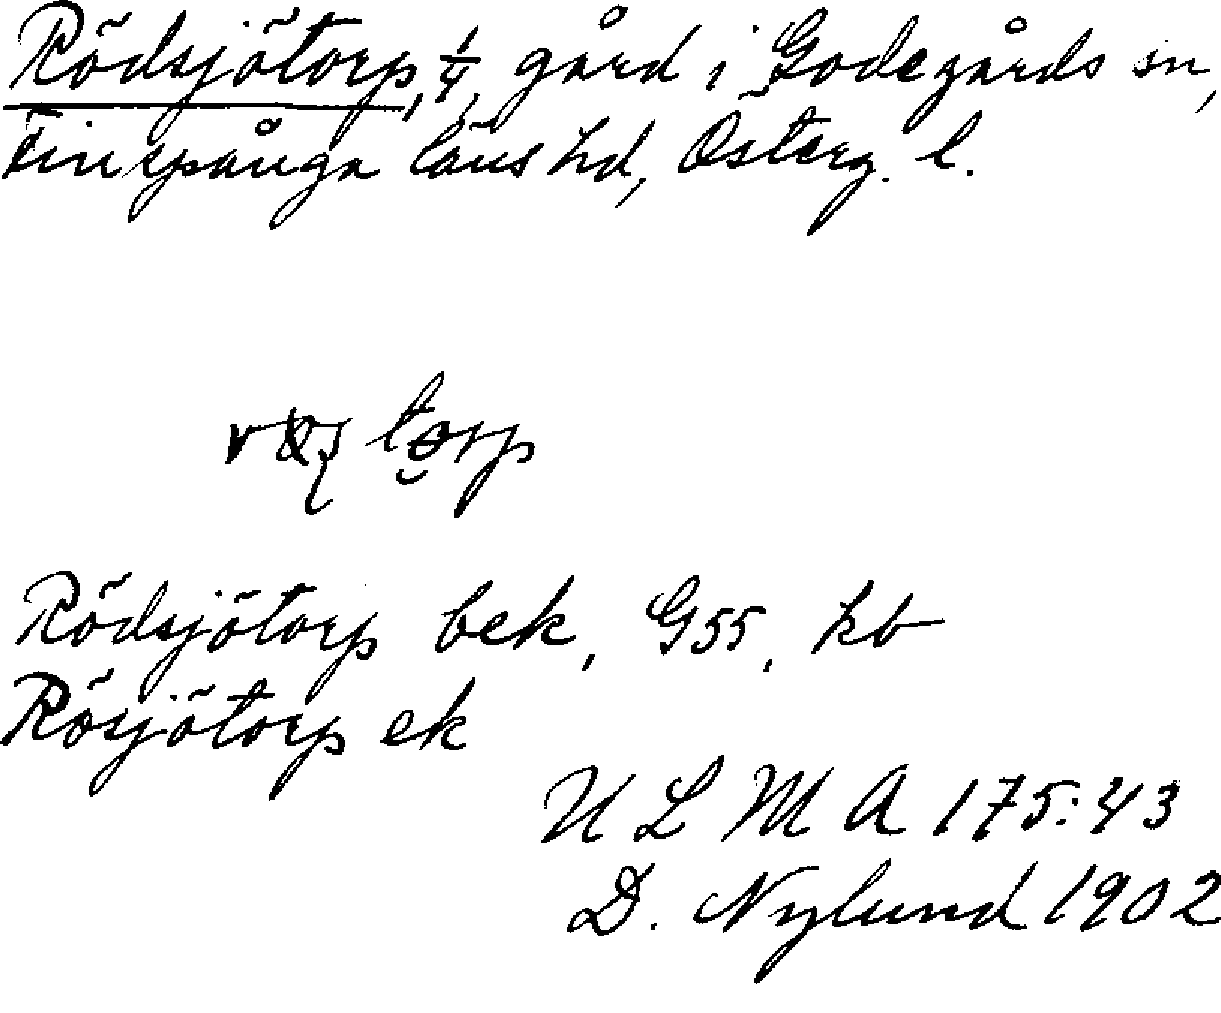 Rödsjötorp, 1/4, gård i Godegårds sn,
Finspånga läns hd, Österg. l.
Rödsjötorp bek, G55, kb
Rösjötorp ek
ULMA 175:43
D. Nylund 1902